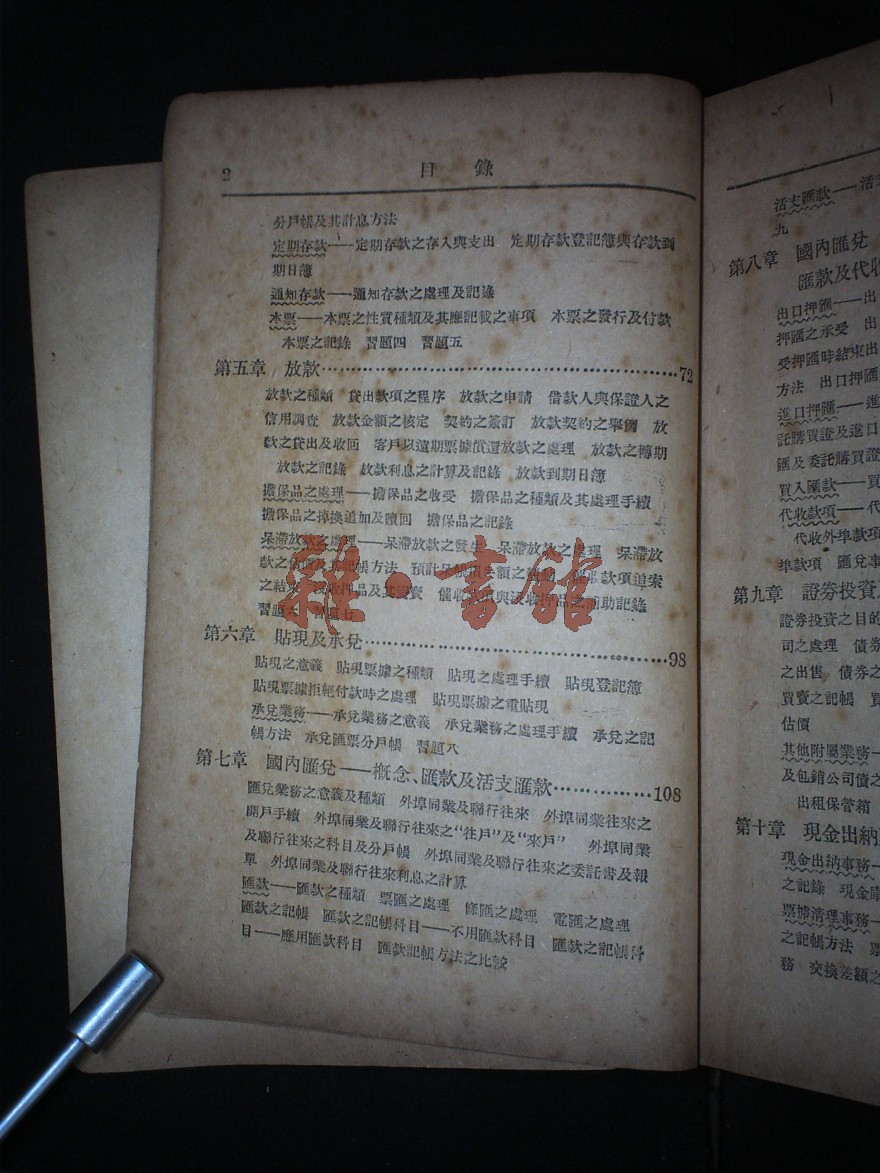 2 目錄
分戶帳及其計息方法
定期存款——定期存款之存入與支出 定期存款登記簿與存款到
期日簿
通知存款——通知存款之處理及記錄
本票——本票之性質種類及其應記載之事項 本票之發行及付款
本票之記錄 習題四 習題五
第五章 放款……………………………………………72
放款之種類 貸出款項之程序 放款之申請 借款人與保證人之
信用調查 放款金額之核定 契約之簽訂 放款契約之舉例 放
款之貸出及收回 客戶以遠期票據償還放款之處理 放款之轉期
放款之記錄 放款利息之計算及記錄 放款到期日簿
擔保品之處理——擔保品之收受 擔保品之種類及其處理手續
擔保品之掉換追加及贖回 擔保品之記錄
呆滯放款之處理——呆滯放款之發生 呆滯放款之處理 呆滯放
款之估價及其記帳方法 預計呆帳損失額之 款項追索
之結束 押品及其 催收款項與沒收押品之補助記錄
習題六
雜·書館
第六章 貼現及承兌……………………………………98
貼現之意義 貼現票據之種類 貼現之處理手續 貼現登記簿
貼現票據拒絕付款時之處理 貼現票據之轉貼現
承兌業務——承兌業務之意義 承兌業務之處理手續 承兌之記
帳方法 承兌匯票分戶帳 習題八
第七章 國內匯兌——概念、匯款及活支匯款……………108
匯兌業務之意義及種類 外埠同業及聯行往來 外埠同業往來之
開戶手續 外埠同業及聯行往來之“往戶”及“來戶” 外埠同業
及聯行往來之科目及分戶帳 外埠同業及聯行往來之委託書及報
單 外埠同業及聯行往來利息之計算
匯款——匯款之種類 票匯之處理 條匯之處理 電匯之處理
匯款之記帳 匯款之記帳科目——不用匯款科目 匯款之記帳科
目——應用匯款科目 匯款記帳方法之比較
活支匯款——活
九
第八章 國內匯兌
匯款及代收
出口押匯——出
押匯之承受 出
受押匯時結束出
方法 出口押匯
進口押匯——進
託購買證及進口
匯及委託購買證
買入匯款——買
代收款項——代
代收外埠款項
埠款項 匯兌事
第九章 證券投資
證券投資之目的
司之處理 債券
之出售 債券之
買賣之記帳 買
估價
其他附屬業務—
及包銷公司債之
出租保管箱
第十章 現金出納
現金出納事務—
之記錄 現金庫
票據清理事務—
之記帳方法 票
務 交換差額之